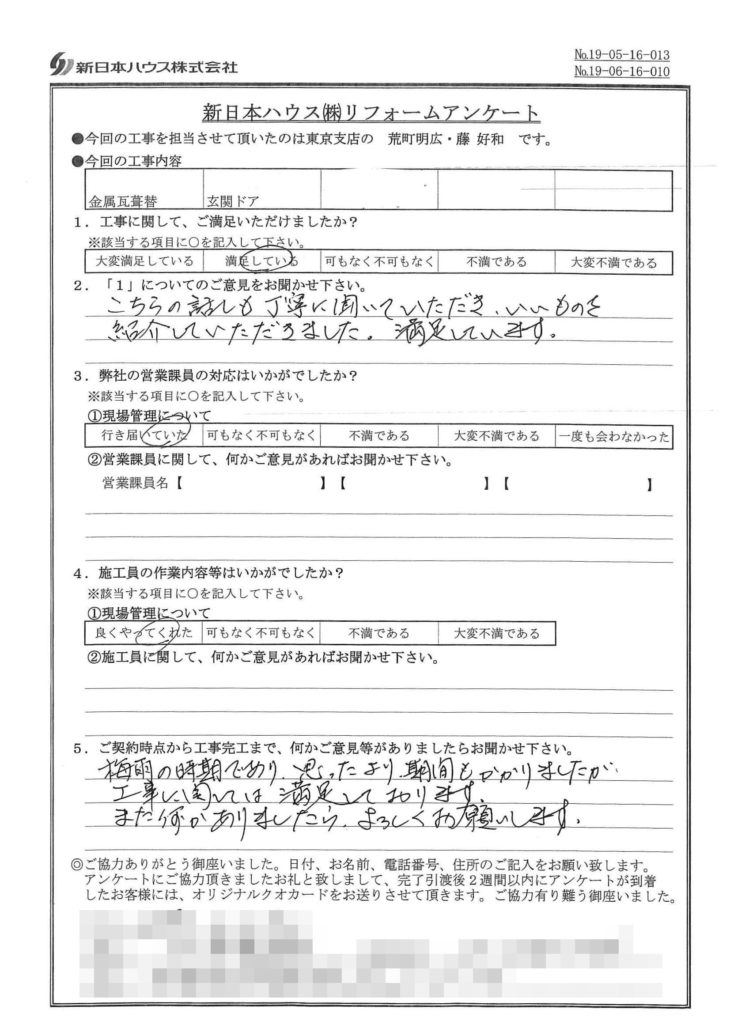 新日本ハウス株式会社
№19-05-16-013
№19-06-16-010
新日本ハウス㈱リフォームアンケート
●今回の工事を担当させて頂いたのは東京支店の 荒町明広・藤 好和 です。
●今回の工事内容
金属瓦葺替 玄関ドア
1．工事に関して、ご満足いただけましたか？
※該当する項目に○を記入して下さい。
大変満足している 満足している 可もなく不可もなく 不満である 大変不満である
2．「1」についてのご意見をお聞かせ下さい。
こちらの話しも丁寧に聞いていただき、いいものを
紹介していただきました。満足しています。
3．弊社の営業課員の対応はいかがでしたか？
※該当する項目に○を記入して下さい。
①現場管理について
行き届いていた 可もなく不可もなく 不満である 大変不満である 一度も会わなかった
②営業課員に関して、何かご意見があればお聞かせ下さい。
営業課員名【 】【 】【 】
4．施工員の作業内容等はいかがでしたか？
※該当する項目に○を記入して下さい。
①現場管理について
良くやってくれた 可もなく不可もなく 不満である 大変不満である
②施工員に関して、何かご意見があればお聞かせ下さい。
5．ご契約時点から工事完工まで、何かご意見等がありましたらお聞かせ下さい。
梅雨の時期であり、思ったより期間もかかりましたが
工事に関しては満足しております。
また何かありましたら、よろしくお願いします。
◎ご協力ありがとう御座いました。日付、お名前、電話番号、住所のご記入をお願い致します。
アンケートにご協力頂きましたお礼と致しまして、完了引渡後２週間以内にアンケートが到着
したお客様には、オリジナルクオカードをお送りさせて頂きます。ご協力有り難う御座いました。